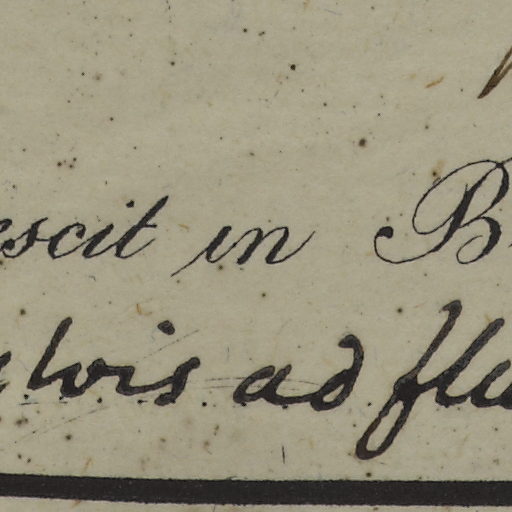 escit in B
ylvis ad flu